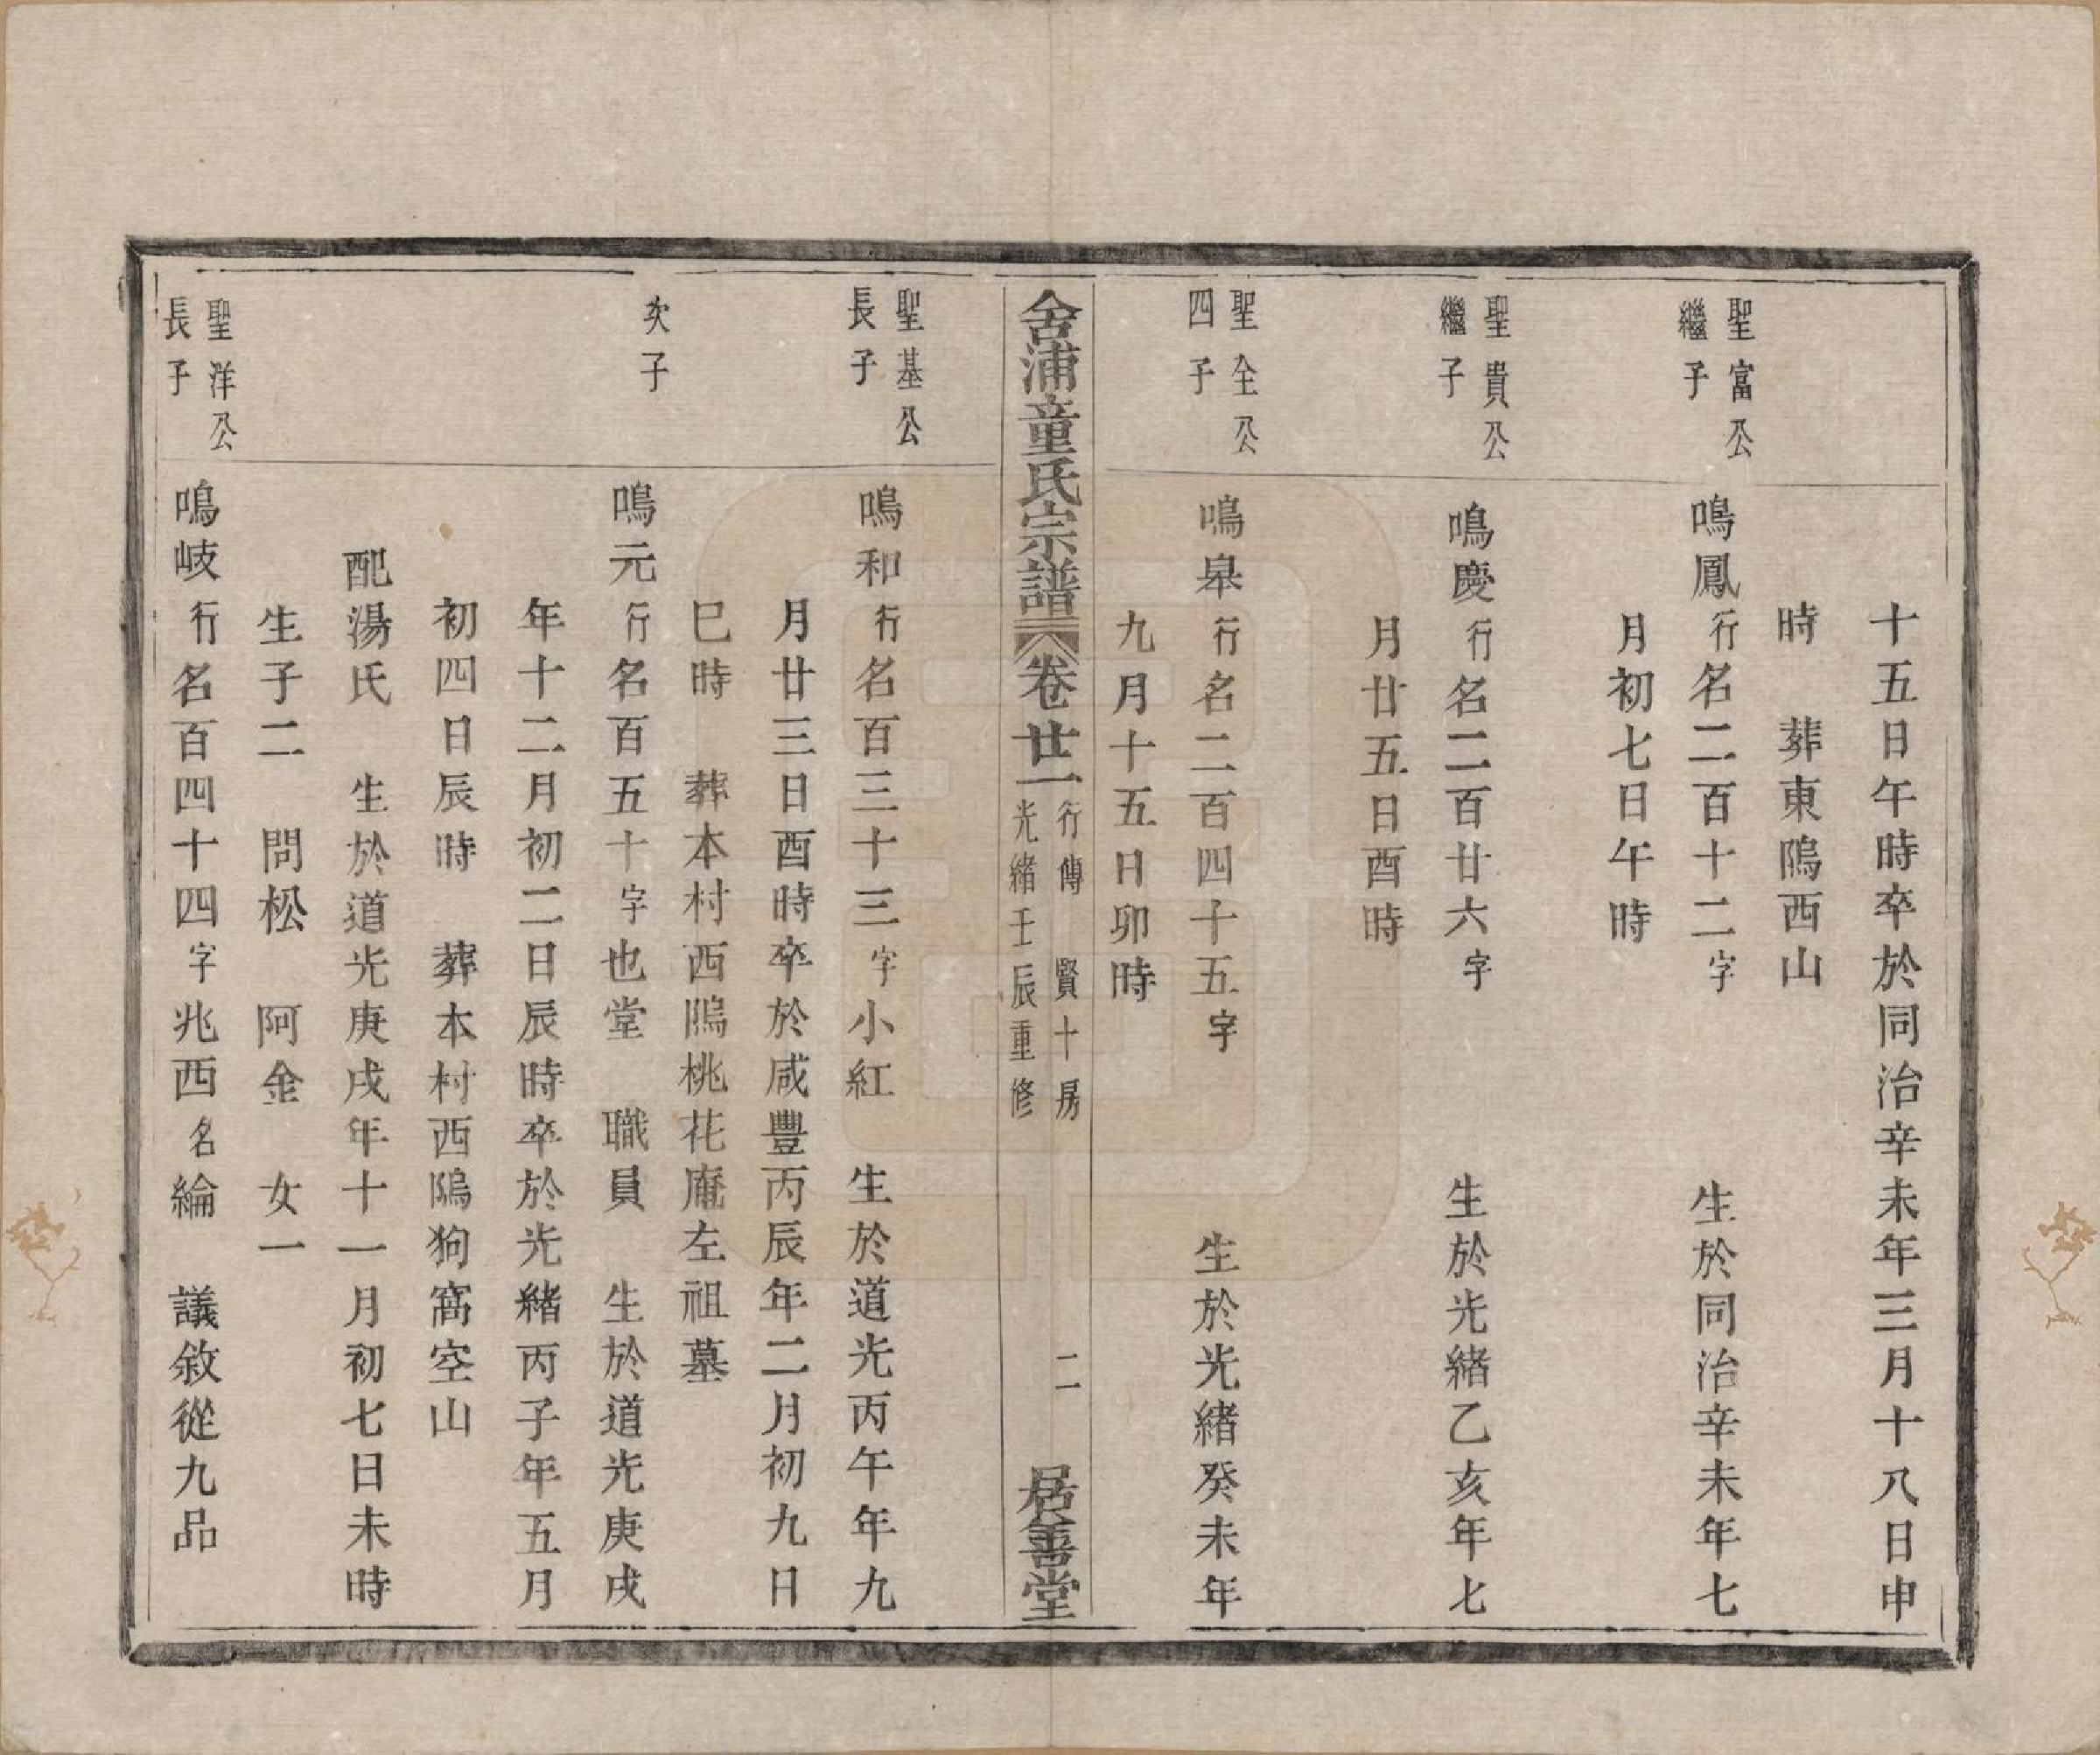 十五日午時卒於同治辛未年三月十八日申
時　葬東隖西山
聖富公
繼子
鳴鳳行名二百十二字　生於同治辛未年七
月初七日午時
聖貴公
繼子
鳴慶行名二百廿六字　生於光緒乙亥年七
月廿五日酉時
聖全公
四子
鳴皋行名二百四十五字　生於光緒癸未年
九月十五日卯時
舍浦童氏宗譜　卷廿一　行傳　賢十房　二
光緒壬辰重修
居善堂
聖基公
長子
鳴和行名百三十三字小紅　生於道光丙午年九
月廿三日酉時卒於咸豐丙辰年二月初九日
巳時　葬本村西隖桃花庵左祖墓
次子
鳴元行名百五十字也堂　職員　生於道光庚戌
年十二月初二日辰時卒於光緒丙子年五月
初四日辰時　葬本村西隖狗窩空山
配湯氏　生於道光庚戌年十一月初七日未時
生子二　問松　阿金　女一
聖洋公
長子
鳴岐行名百四十四字兆西名綸　議敘從九品